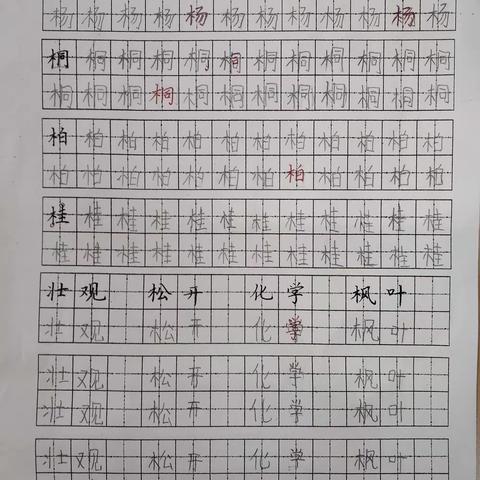 杨杨杨杨杨杨杨杨杨杨杨杨
桐桐桐桐桐桐桐桐桐桐桐桐
桐桐桐桐桐桐桐桐桐桐桐桐
柏柏柏柏柏柏柏柏柏柏柏柏
柏柏柏柏柏柏柏柏柏柏柏柏
桂桂桂桂桂桂桂桂桂桂桂桂
桂桂桂桂桂桂桂桂桂桂桂桂
壮观 松开 化学 枫叶
壮观 松开 化学 枫叶
壮观 松开 化学 枫叶
壮观 松开 化学 枫叶
壮观 松开 化学 枫叶